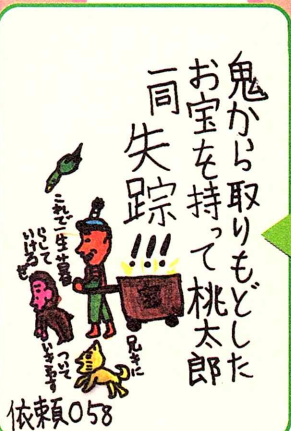 鬼から取りもどした
お宝を持って桃太郎
一同失踪!!!
これで一生暮
らして
いけるぜ
兄きに
ついて
いきます
依頼058